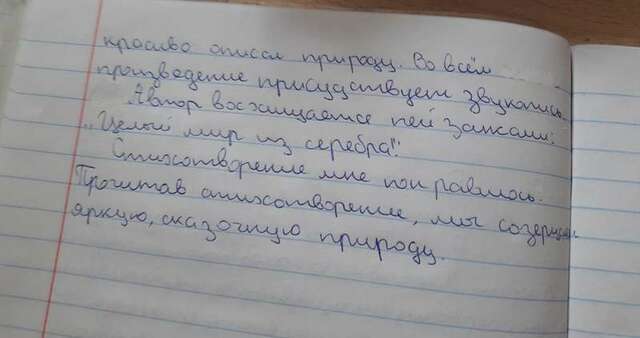 красиво описал природу. Во всём
произведение присуствует звукопись.
Автор восхищается пейзажами:
„Целый мир из серебра!"
Стихотворение мне понравилось.
Прочитав стихотворение, мы созерцаем
яркую, сказочную природу.